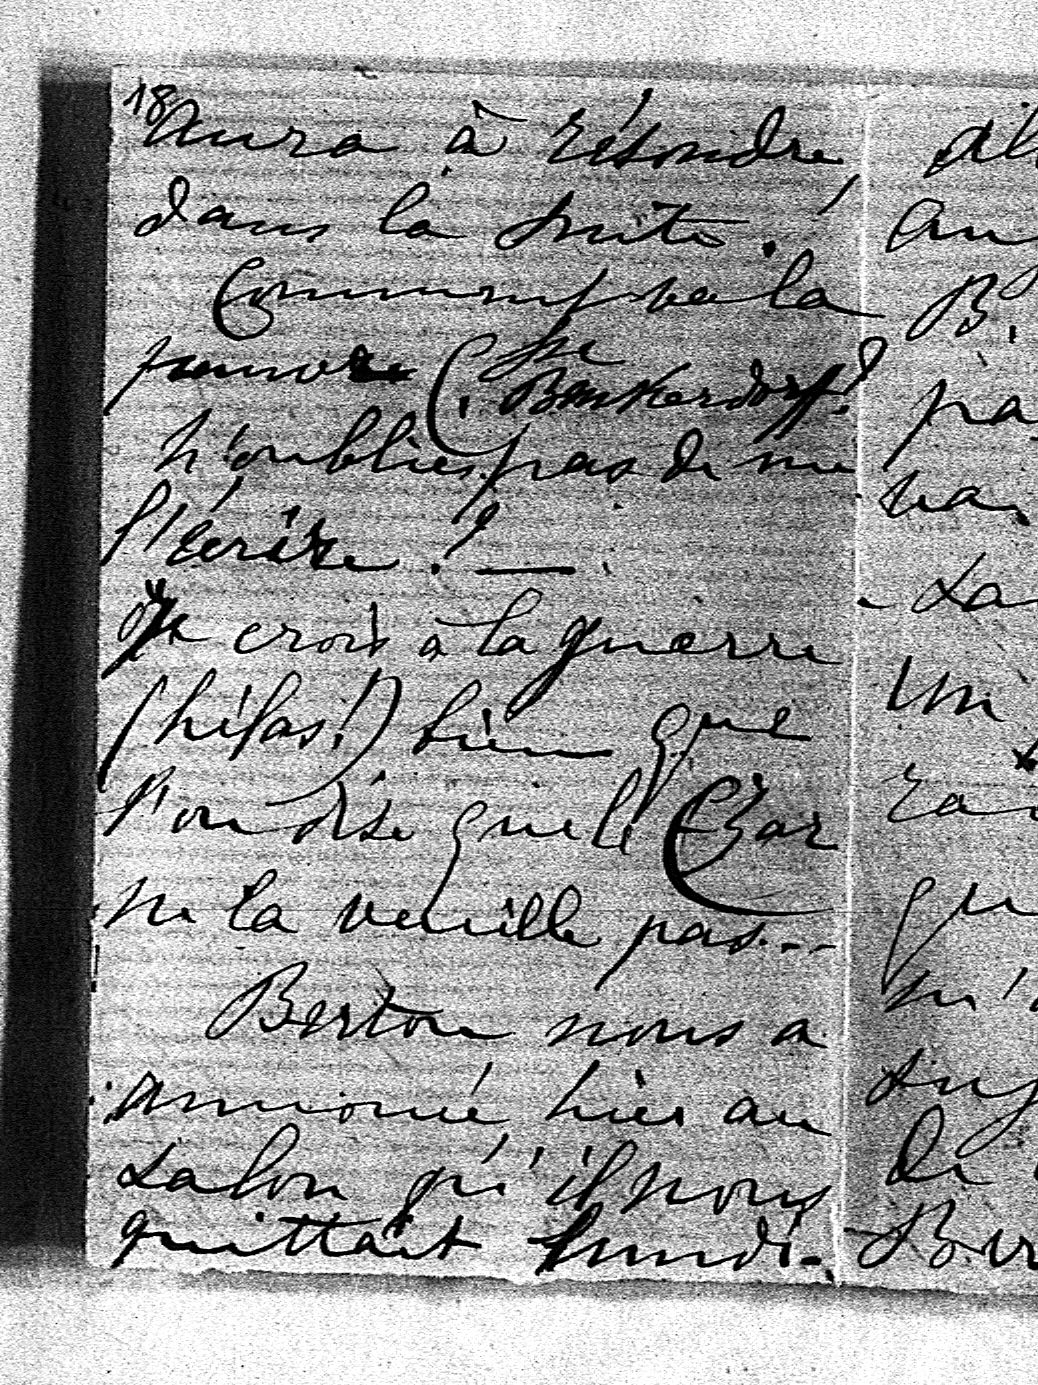 18
aura à résoudre
dans la suite.!
Comment va la
pauvre Csse
Benkendorff?
N'oubliez pas de me
l'écrire! —.
Je crois à la guerre
(hélas!) bien que
l'on dise que le Czar
ne la veuille pas...
Bertou nous a
annoncé hier au
salon qu'il nous
quittait lundi.
au
B.
pa
va
La
un
ra
que
n'a
de
Ber